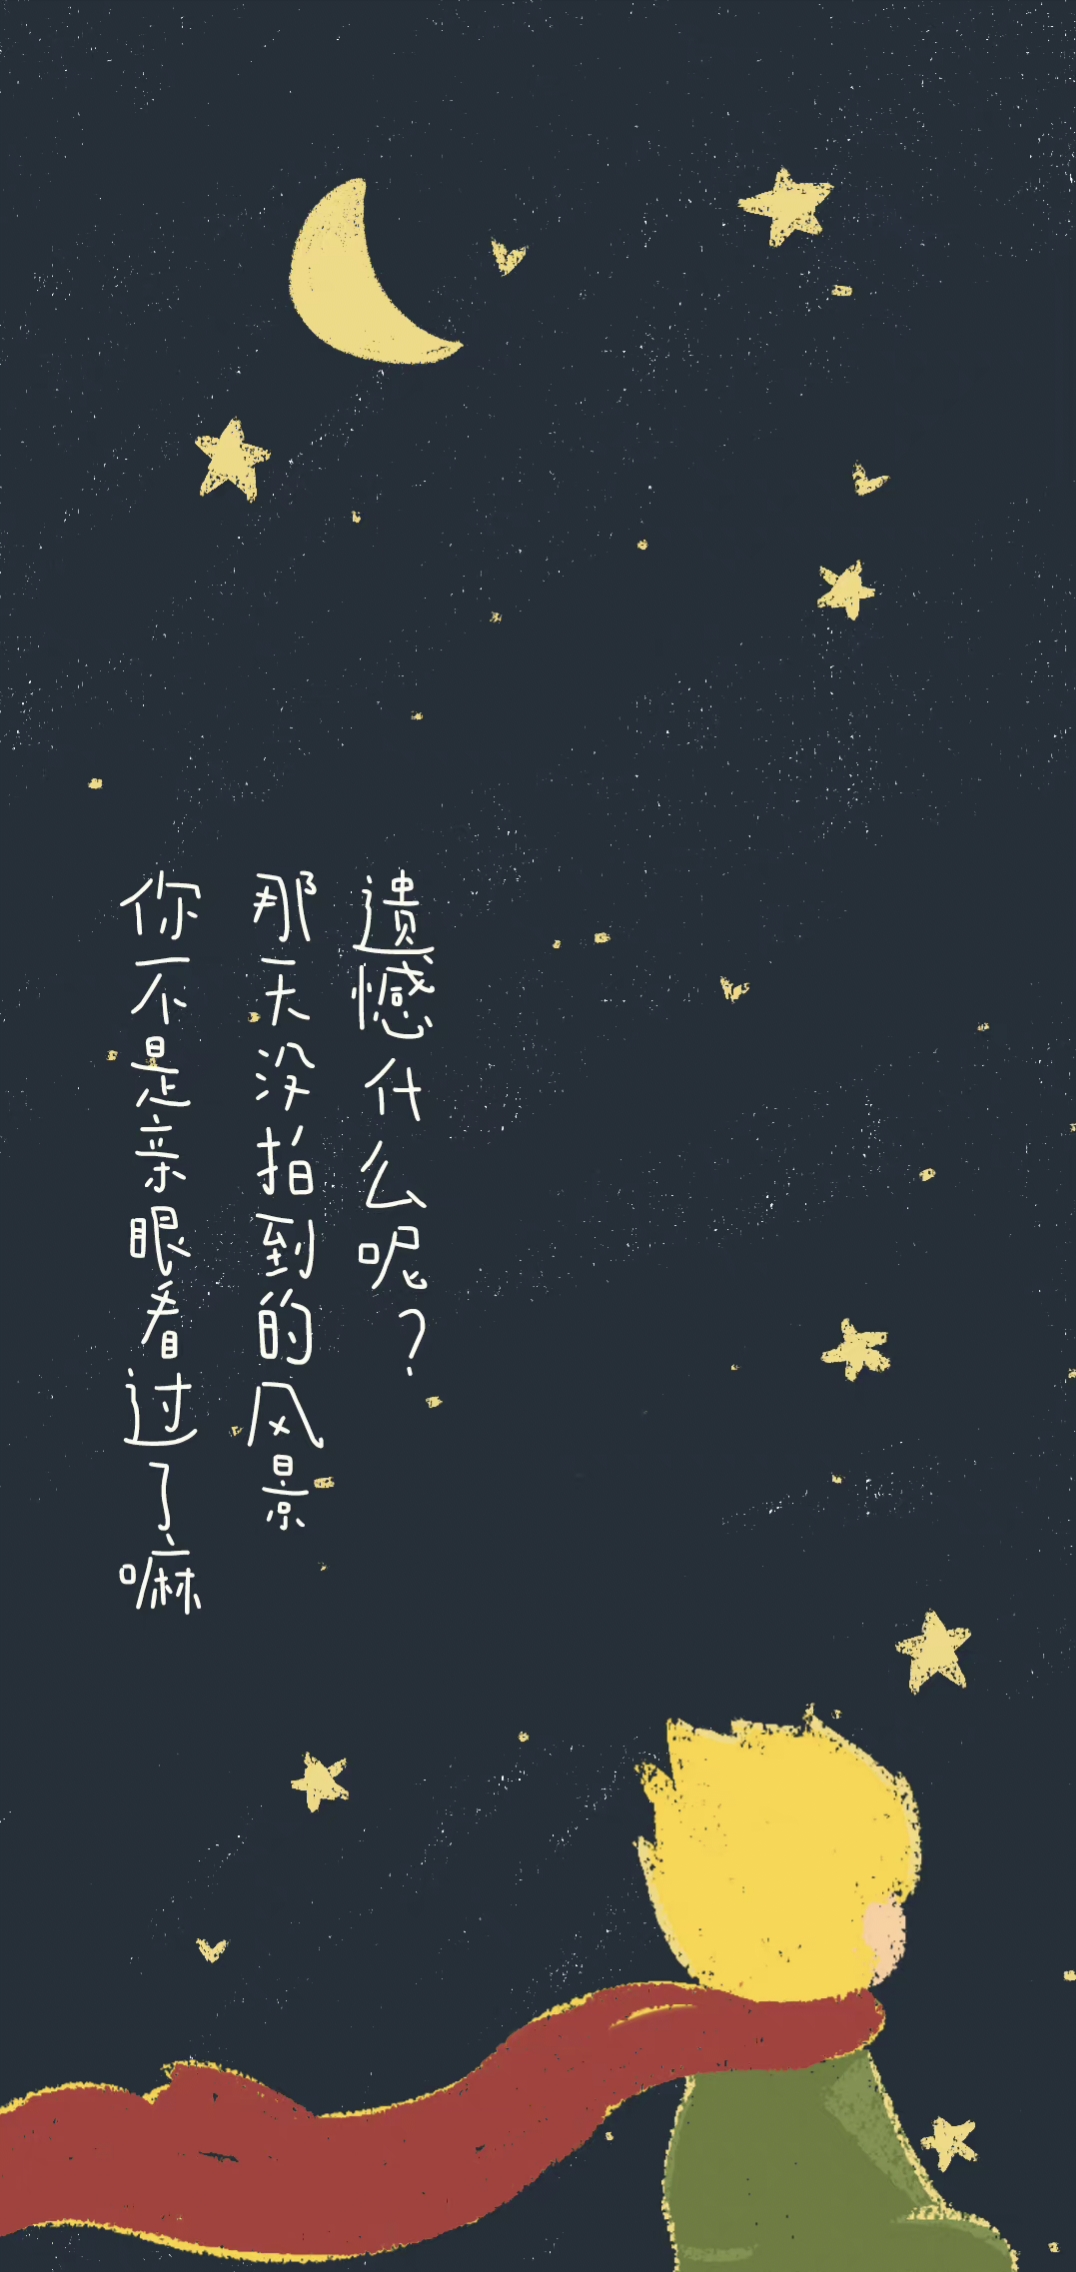 遗憾什么呢？
那天没拍到的风景
你不是亲眼看过了嘛